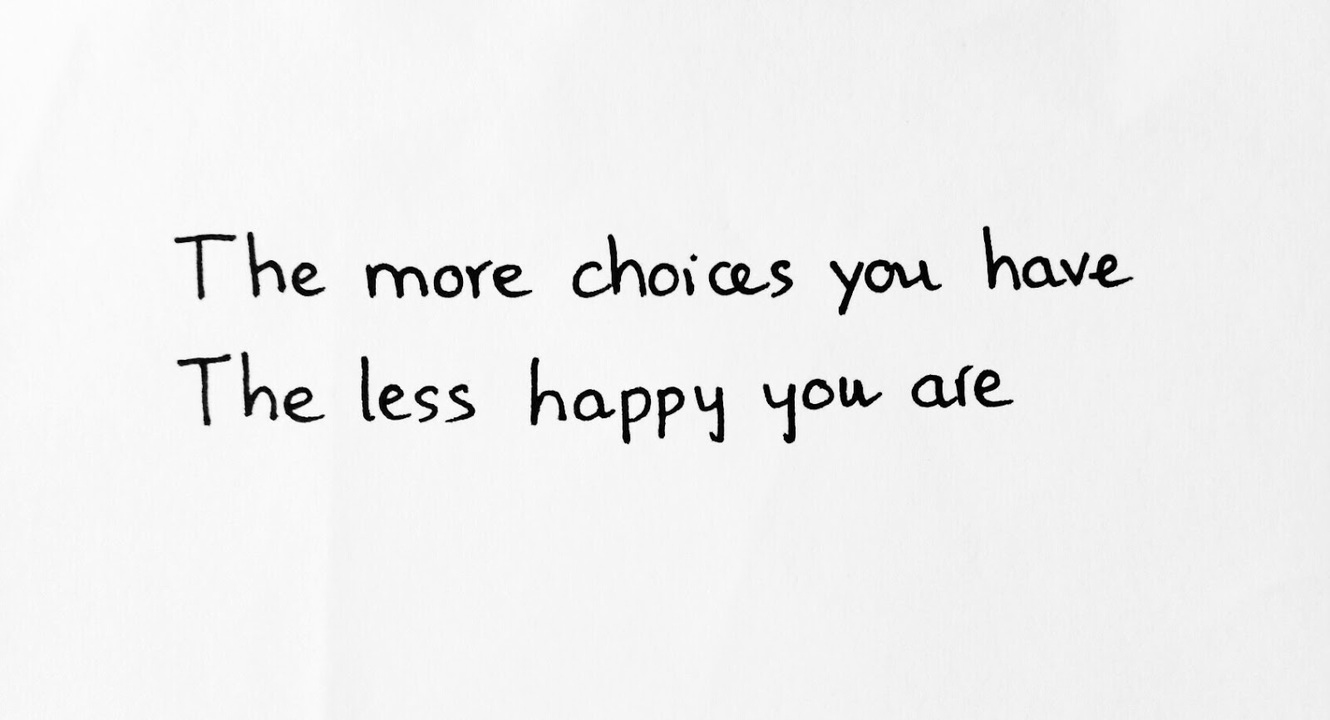 The more choices you have
The less happy you are